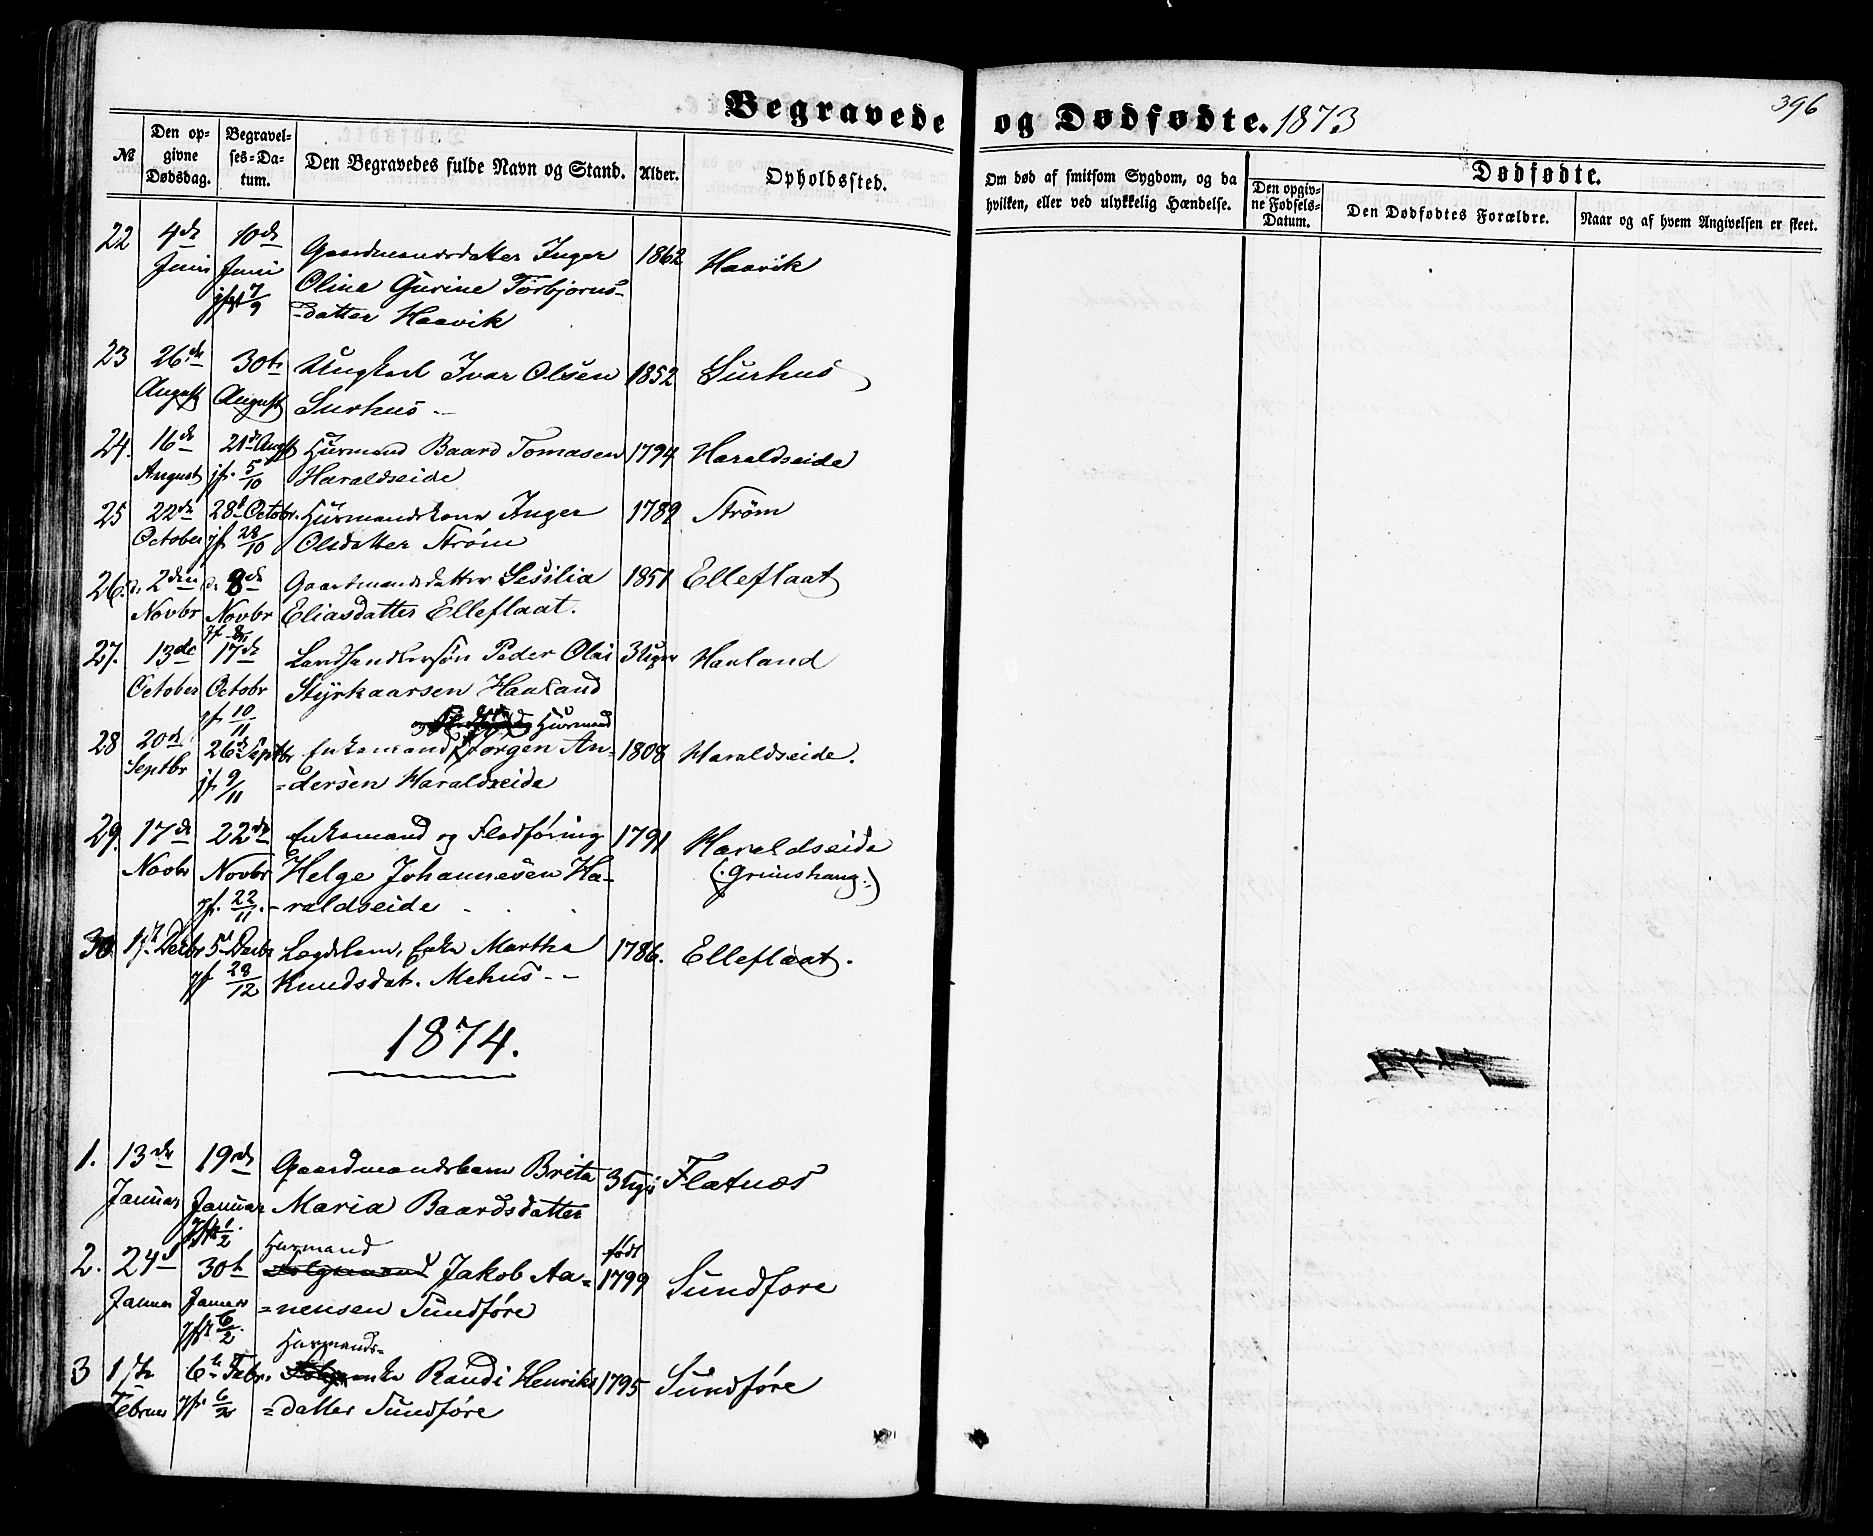 Begravede og Dødfødte. 1873
396
№
Den op-
givne
Dødsdag.
Begravel-
ses-Da-
tum.
Den Begravedes fulde Navn og Stand.
Alder.
Opholdssted.
Om død af smitsom Sygdom, og da
hvilken, eller ved ulykkelig Hændelse.
Dødfødte.
Den opgiv-
ne Fødsels-
Datum.
Den Dødfødtes Forældre.
Naar og af hvem Angivelsen er skeet.
22 4de 10de Gaardmandsdatter Inger 1862 Haavik
Juni Juni Oline Gurine Torbjorns-
jfst 7/9 -datter Haavik
23 26de 30te Ungkarl Ivar Olsen 1852 Surhus
August August Surhus
24. 16de 21de Augst Huusmand Baard Tomasen 1794 Haraldseide
August jf. 5/10 Haraldseide
25 22de 28de Octobr. Huusmandskone Inger 1789 Strøm
October jf 28/10 Olsdatter Strøm
26. d. 2den d. 8de Gaardmandsdatter Sesilia 1851 Elleflaat
Novbr Novbr Eliasdatter Elleflaat.
27. 13de 17de Landhandlersøn Peder Olai 3 Uger Hauland
October Octobr Styrkaarsen Hauland
jf. 10/11
Huusmand
28 20de 26de Septbr Enkemand Jørgen An- 1808 Haraldseide.
Septbr jf. 9/11 -dersen Haraldseide
29. 17de 22de Enkemand og Fladføring 1791 Haraldseide
Novbr Novbr Helge Johannesen Ha- (: Grimshaug :)
jf. 22/11 -raldseide
30. 1ste Decbr 5te Decbr Lægdslem, Enke Martha 1786. Elleflaat.
jf 28/12 Knudsdat. Mehus
1874.
1. 13de 19de Gaardmandsbarn Brita 3 Uger Flatnæs
Januar Januar Maria Baardsdatter
jfst 1/2
Huusmand født
2. 24de 30te Jakob Aa- 1799 Sundføre
Januar Januar -nensen Sundføre
jfst 6/2
Huusmands-
3 1ste 6te Febr. enke Randi Henriks 1795 Sundføre
Februar jfr 6/2 -datter Sundføre